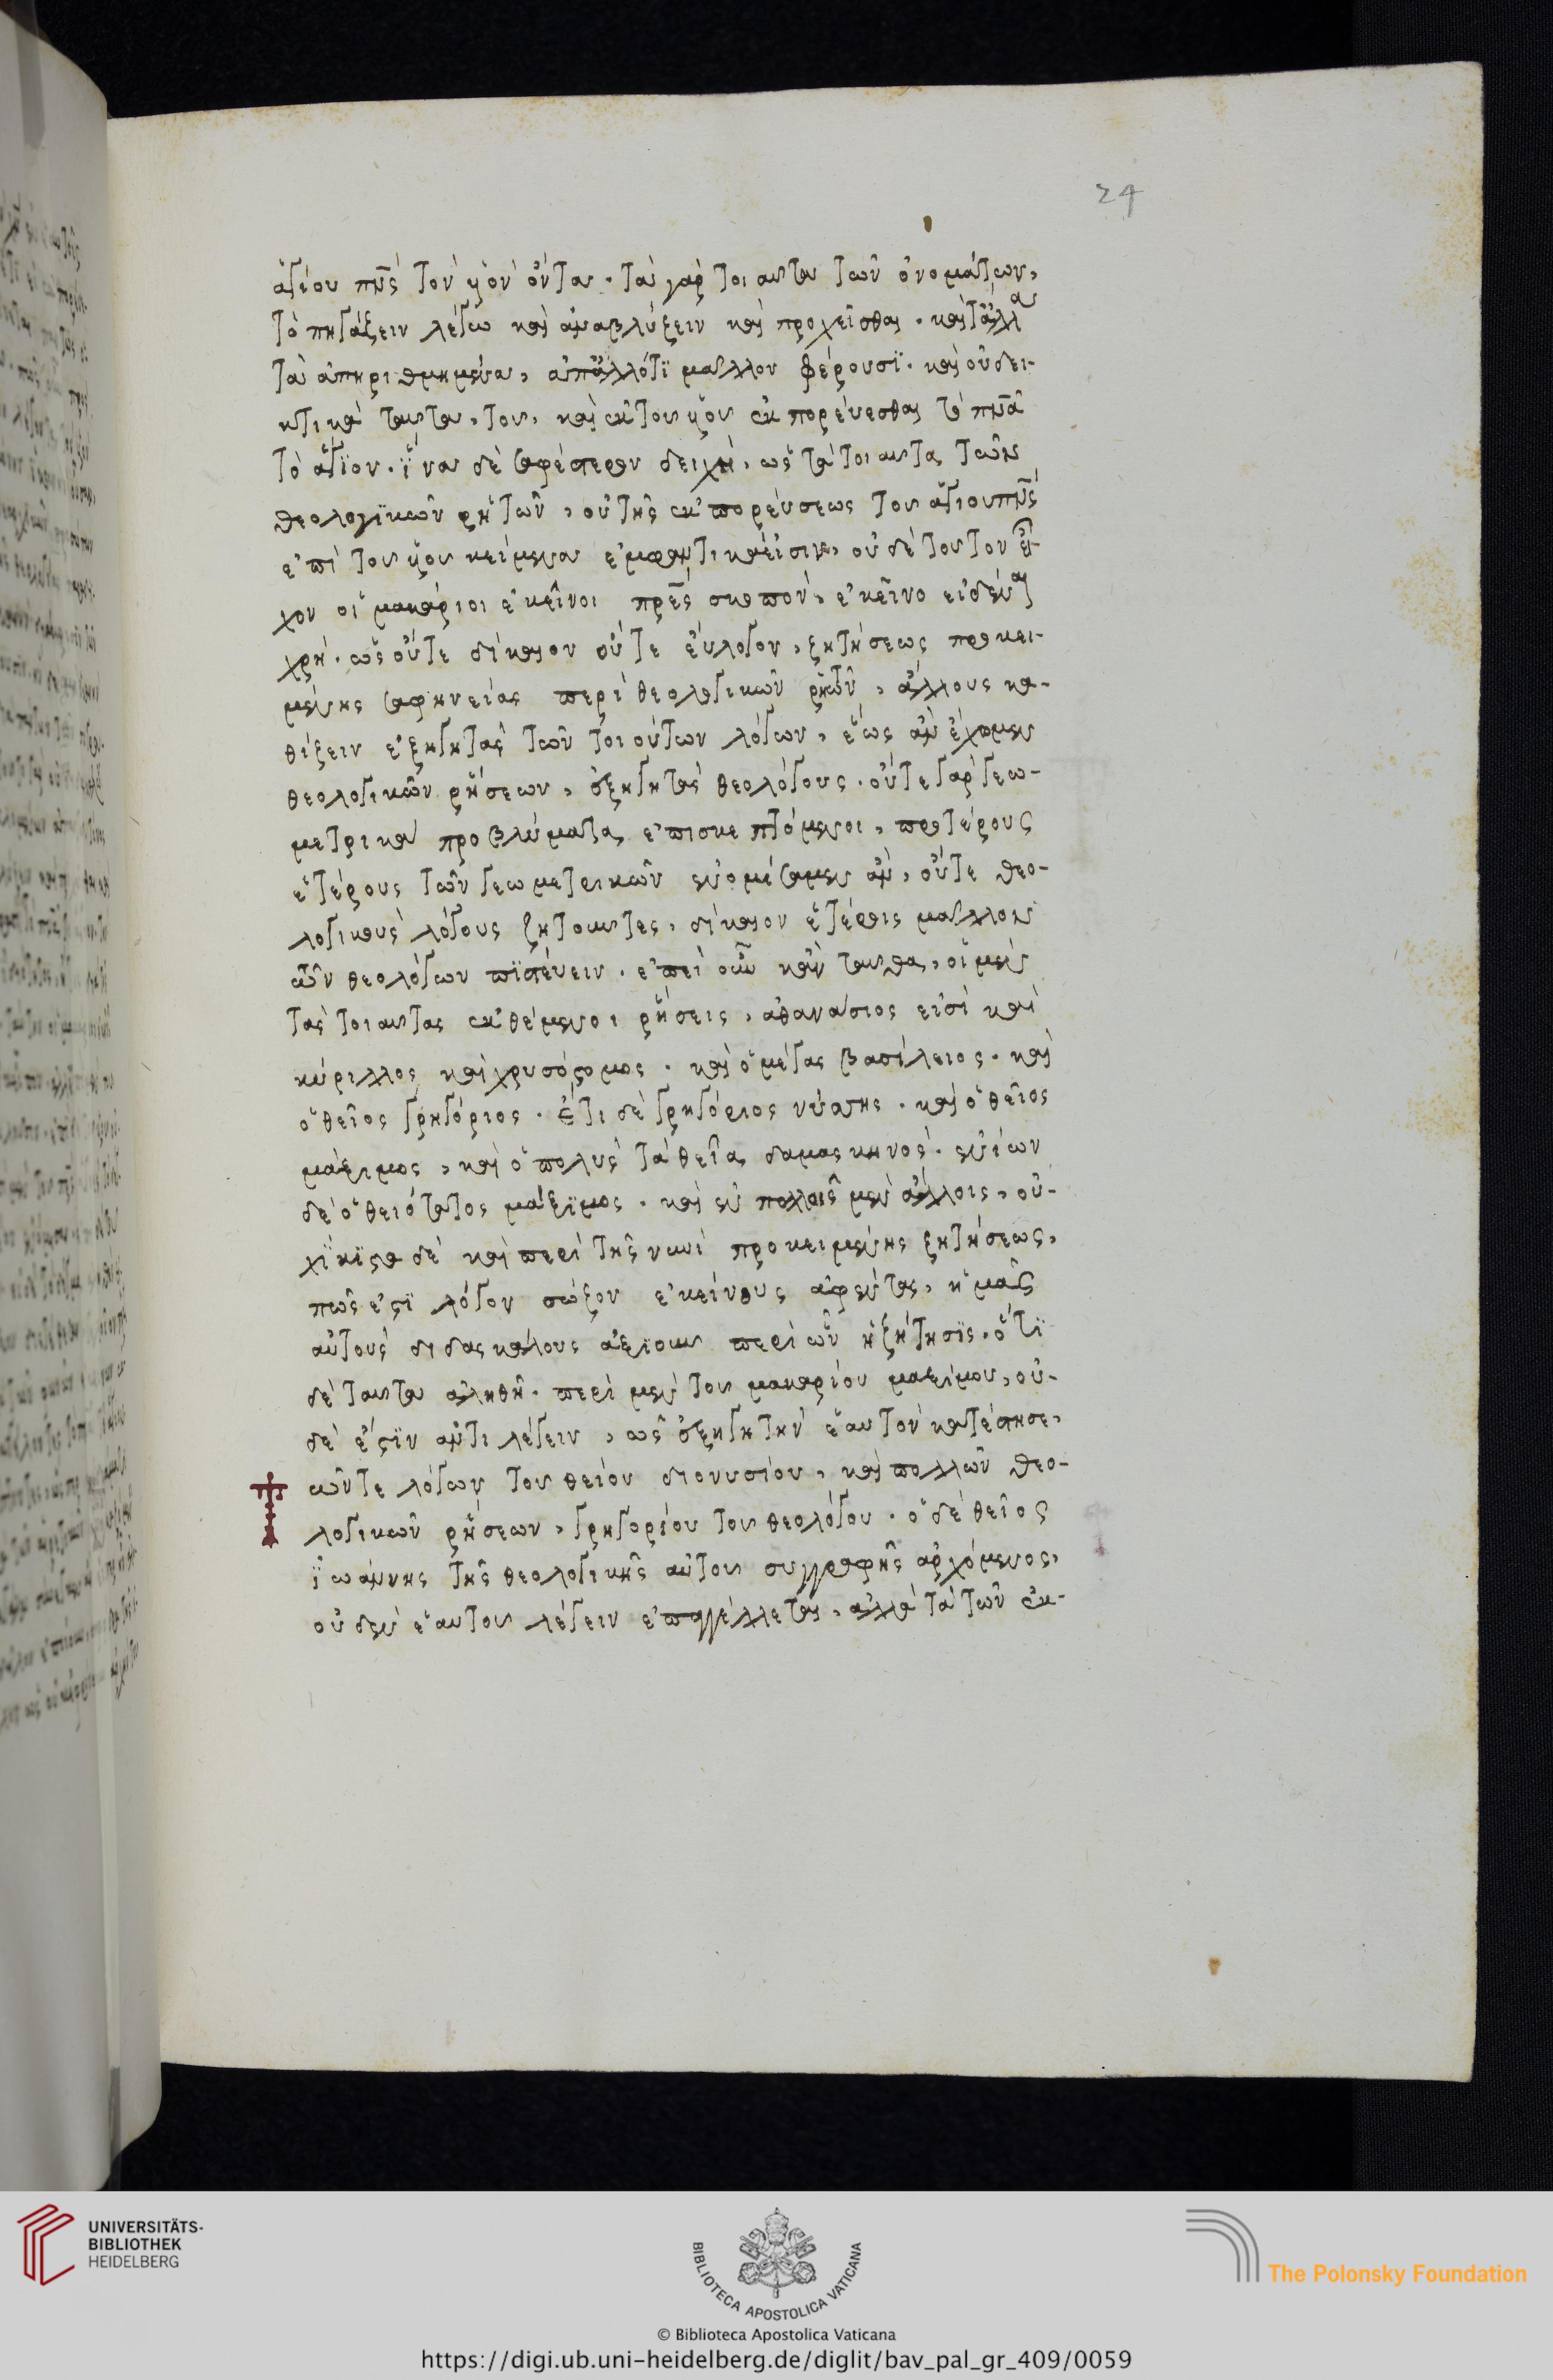 24
ἁγίου πν̅ς τὸν υ̅ον ὄντα. τὰ γὰρ τοιαῦτα τῶν ὀνομάτων,
τὸ πηγάζειν λέγω καὶ ἀναβλύζειν καὶ προχεῖσθαι. καὶ τἄλλα
τὰ ἀπηριθμημένα, ἀπάλλό τι μᾶλλον φέρουσϊ. καὶ οὐ δει-
κτικὰ ταῦτα, τοῦ, καὶ ἐκ τοῦ υ̅ου ἐκπορεύεσθαι τὸ πν̅α
τὸ ἅγϊον. ἵνα δὲ σαφέστερον δειχθῆ, ὡς τὰ τοιαῦτα τῶν
θεολογϊκῶν ῥητῶν, οὐ τῆς ἐκπορεύσεως τοῦ ἁγίου πν̅ς
ἐπὶ τοῦ υ̅ου κείμενα ἐμφαντικὰ εἰσιν, οὐδὲ τοῦτον εἶ-
χον οἱ μακάριοι ἐκεῖνοι πρ̅ες σκοπὸν, ἐκεῖνο εἰδέναι
χρή. ὡς οὔτε δίκαιον οὔτε εὔλογον, ζητήσεως προκει-
μένης σαφηνείας περὶ θεολογικῶν ῥητῶν, ἄλλους κα-
θίζειν ἐξηγητὰς τῶν τοιούτων λόγων, ἕως ἂν ἔχομεν
θεολογικῶν ῥήσεων, ἐξηγητὰς θεολόγους. οὔτε γὰρ γεω-
μετρικὰ προβλήματα ἐπισκεπτόμενοι, προτέρους
ἑτέρους τῶν γεωμετρικῶν ἐνομίσαμεν ἂν, οὔτε θεο-
λογικοὺς λόγους ζητοῦντες, δίκαιον ἑτέροις μᾶλλον
ὧν θεολόγων πϊστεύειν. ἐπεὶ οὖν κἀνταῦθα, οἱ μὲν
τὰς τοιαύτας ἐκθέμενοι ῥήσεις, ἀθανάσιος εἰσὶ καὶ
κύριλλος καὶ χρυσόστομος. καὶ ὁ μέγας βασίλειος. καὶ
ὁ θεῖος γρηγόριος. ἔτι δὲ γρηγόριος νύσσης. καὶ ὁ θεῖος
μάξιμος, καὶ ὁ πολὺς τὰ θεῖα δαμασκηνός. ἐνίων
δὲ ὁ θειότατος μάξϊμος. καὶ ἐν πολλοῖς μὲν ἄλλοις, οὐ-
χ ἥκιστα δὲ καὶ περὶ τῆς νυνὶ προκειμένης ζητήσεως,
πῶς ἐστϊ λόγον σώζον ἐκείνους ἀφέντας, ἡμᾶς
αὐτοὺς διδασκάλους ἀξιοῦν περὶ ὧν ἡ ζήτησϊς. ὅτϊ
δὲ ταῦτα ἀληθῆ. περὶ μὲν τοῦ μακαρίου μαξίμου, οὐ-
δὲ ἔστϊν ἀντιλέγειν, ὡς ἐξηγητὴν ἑαυτὸν κατέστησε,
ὧν τε λόγων τοῦ θείου διονυσίου, καὶ πολλῶν θεο-
λογικῶν ῥήσεων, γρηγορίου τοῦ θεολόγου. ὁ δὲ θεῖος
ϊωάννης τῆς θεολογικῆς αὐτοῦ συγγραφῆς ἀρχόμενος,
οὐδὲν ἑαυτοῦ λέγειν ἐπαγγέλλεται, ἀλλὰ τὰ τῶν ἐκ-
UNIVERSITÄTS-
BIBLIOTHEK
HEIDELBERG
BIBLIOTECA APOSTOLICA VATICANA
The Polonsky Foundation
© Biblioteca Apostolica Vaticana
https://digi.ub.uni-heidelberg.de/diglit/bav_pal_gr_409/0059